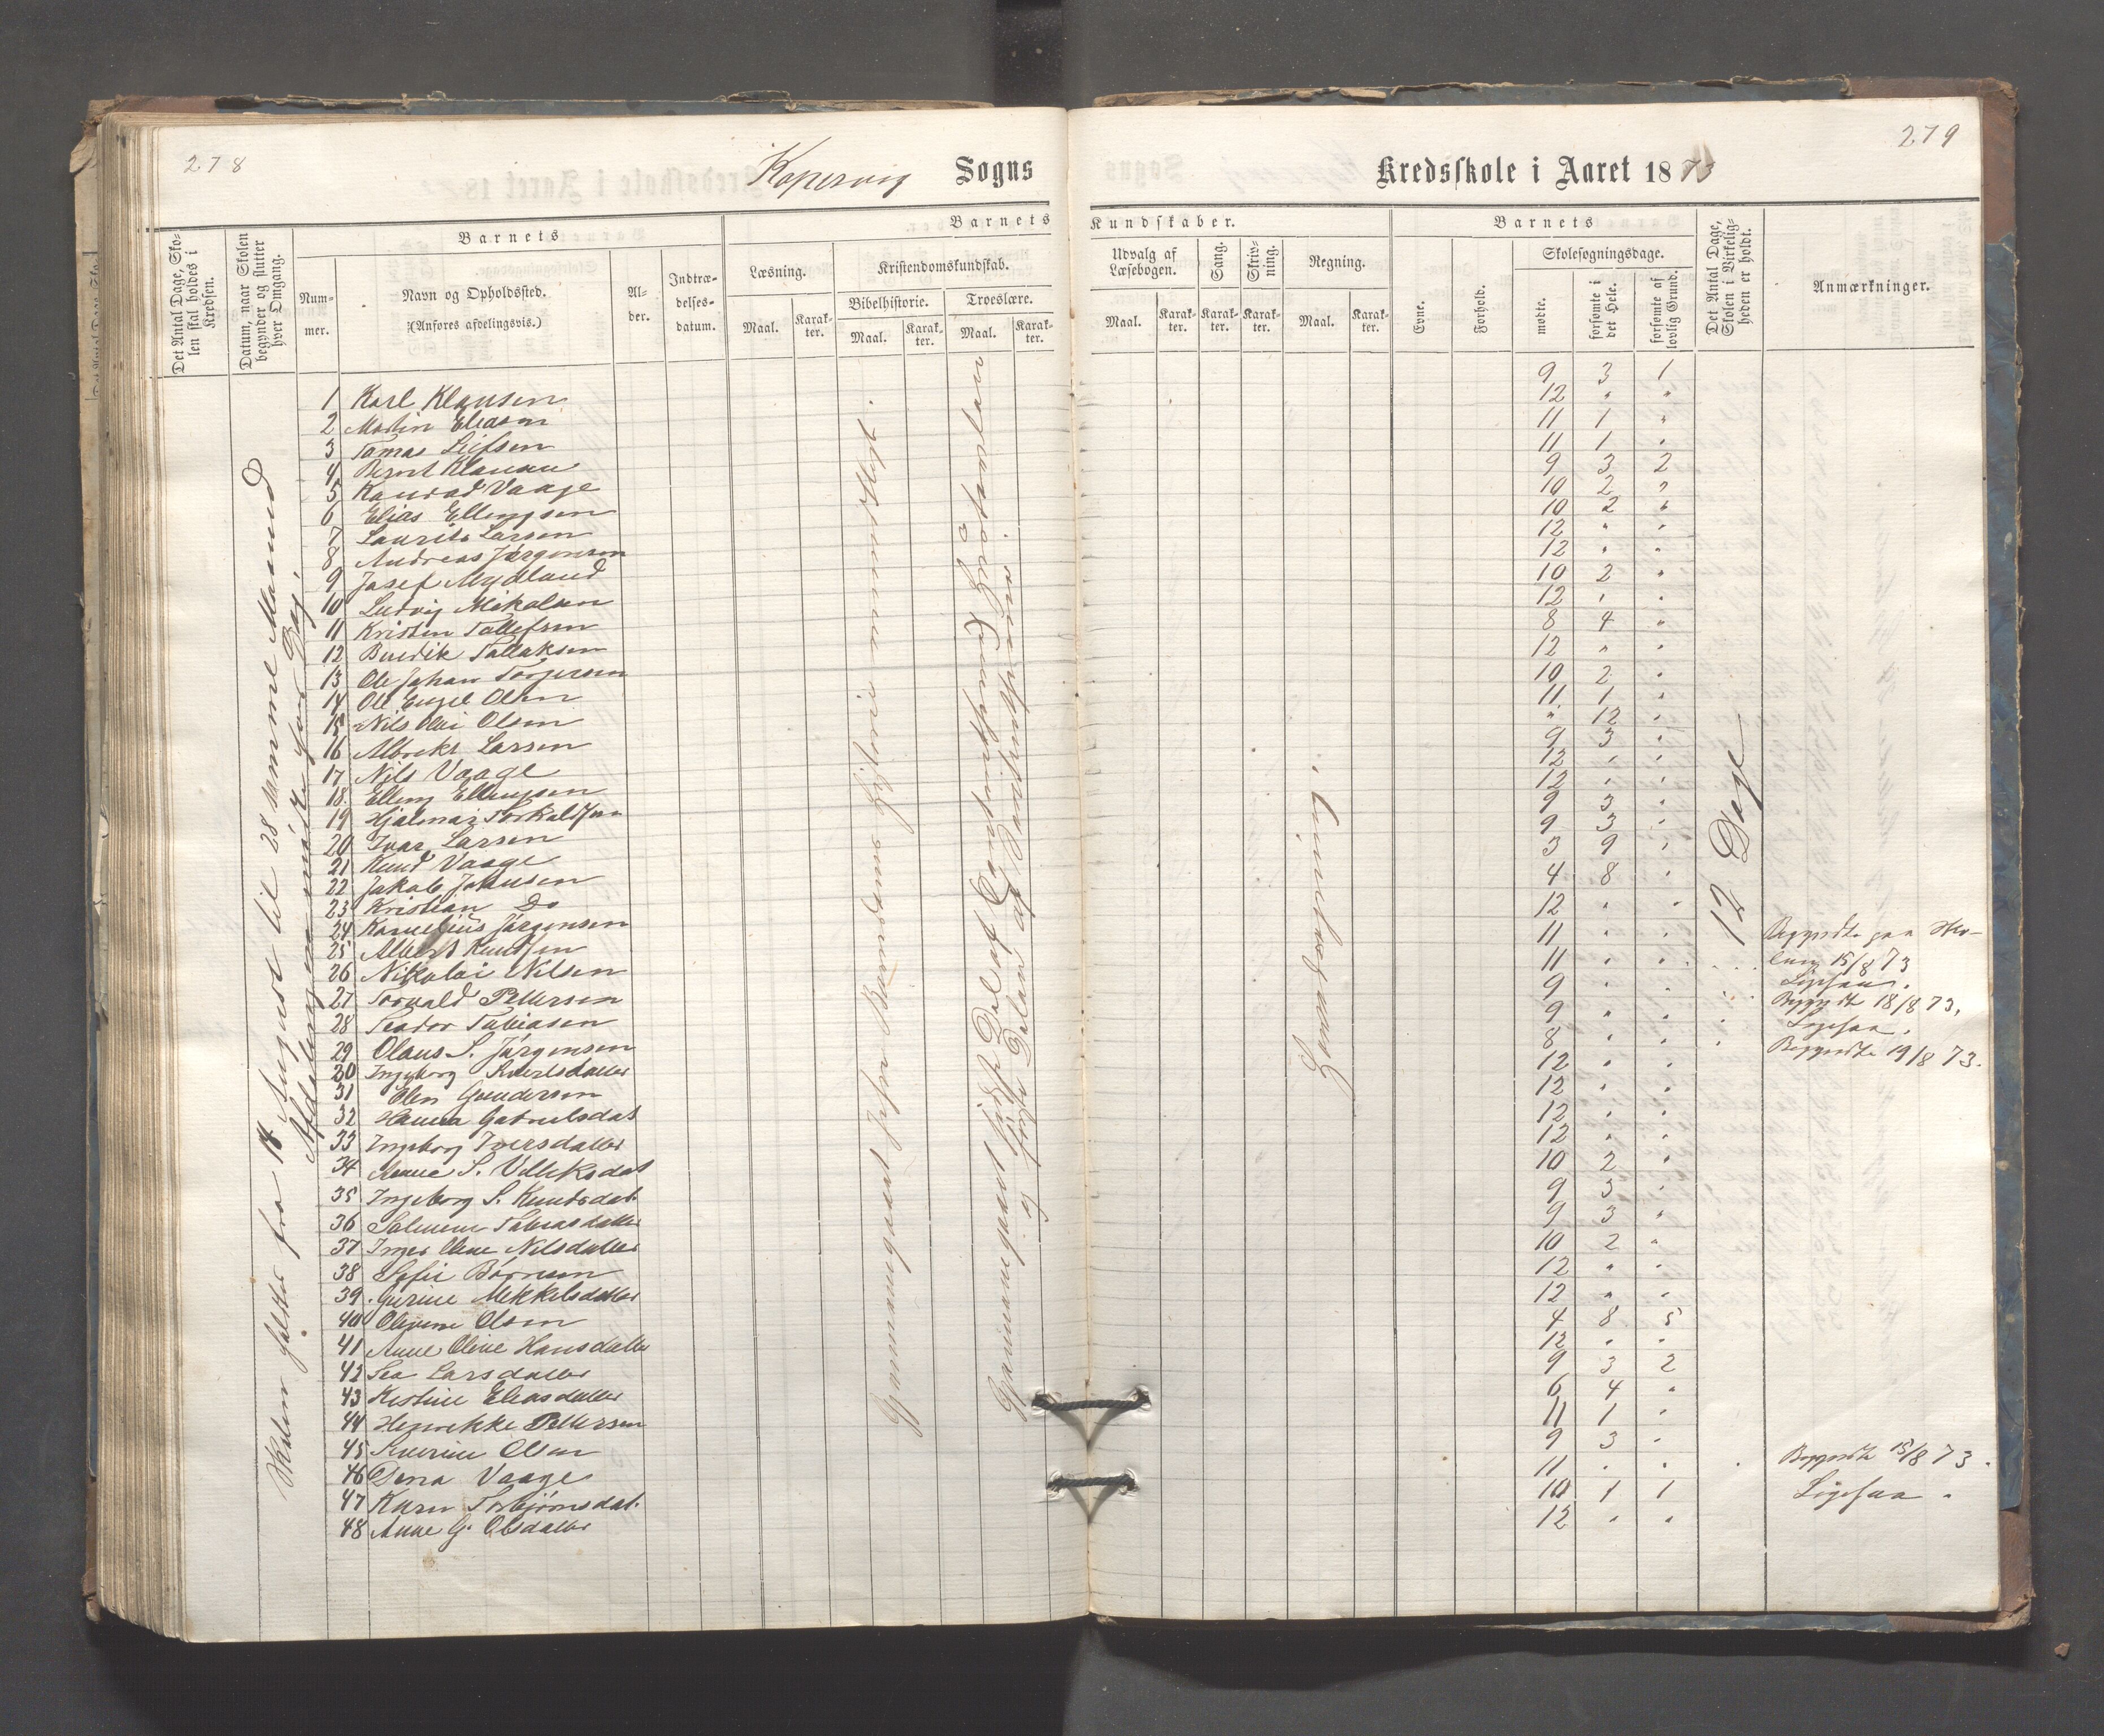 278
Kopervig Sogns
Barnets
Det Antal Dage, Sko-
len skal holdes i
Kredsen.
Datum, naar Skolen
begynder og slutter
hver Omgang.
Barnets
Num-
mer.
Navn og Opholdssted.
(Anføres afdelingsvis.)
Al-
der.
Indtræ-
delses-
datum.
Læsning.
Maal.
Karak-
ter.
Kristendomskundskab.
Bibelhistorie.
Maal.
Karak-
ter.
Troeslære.
Maal.
Karak-
ter.
Skolen holdtes fra 14 August til 28 samme Maaned
Afdelingen mødte hver Dag.
1 Karl Klausen
2 Martin Eliasen
3 Tomas Leifsen
4 Berent Klausen
5 Konrad Vaage
6 Elias Ellingsen
7 Laurits Larsen
8 Andreas Jørgensen
9 Josef Mydland
10 Ludvig Mikalsen
11 Kristen Tollefsen
12 Bendik Tollaksen
13 Ole Johan Torgersen
14 Ole Engel Olsen
15 Nils Olai Olsen
16 Albrekt Larsen
17 Nils Vaage
18 Elling Ellingsen
19 Hjalmar Torkaldsen
20 Ivar Larsen
21 Knud Vaage
22 Jakob Johnsen
23 Kristian Do
24 Kornelius Jørgensen
25 Albert Knudsen
26 Nikolai Nilsen
27 Torvald Pettersen
28 Teodor Tobiasen
29 Olaus S. Jørgensen
30 Ingeborg Sivertsdatter
31 Elen Gundersen
32 Hanna Gabrielsdat
33 Ingeborg Iversdatter
34 Anne S. Villiksdat
35 Ingeborg S. Knudsdat.
36 Salmine Tobiasdatter
37 Inger Oline Nilsdatter
38 Sofie Børresen
39 Gurine Mekkelsdatter
40 Olevine Olsen
41 Anne Oline Hansdatter
42 Lea Larsdatter
43 Kestine Eliasdatter
44 Henrikke Pettersen
45 Severine Olsen
46 Dina Vaage
47 Karen Torbjørnsdat.
48 Anne G. Olsdatter
Gjennemgaaet Jesu Barndoms Historie
Gjennemgaaet sidste Del af
og første Del
279
Kredsskole i Aaret 1873
Kundskaber.
Udvalg af
Læsebogen.
Maal.
Karak-
ter.
Sang.
Karak-
ter.
Skriv-
ning.
Karak-
ter.
Regning.
Maal.
Karak-
ter.
Barnets
Evne.
Forhold.
Skolesøgningsdage.
mødte.
forsømte i
det Hele.
forsømte af
lovlig Grund.
Det Antal Dage,
Skolen i Virkelig-
heden er holdt.
Anmærkninger.
9 3 1
12 " "
11 1 "
11 1 "
9 3 2
10 2 "
10 2 "
12 " "
12 " "
10 2 "
12 " "
8 4 "
12 " "
10 2 "
11 1 "
" 12 "
9 3 "
12 " "
12 " "
9 3 "
9 3 "
3 9 "
4 8 "
12 " "
11 " " Begyndte paa Sko-
11 " " len 15/8 73
9 " " Ligesaa.
9 " " Begyndte 18/8 73.
8 " " Ligesaa.
12 " " Begyndte 19/8 73.
12 " "
12 " "
12 " "
10 2 "
9 3 "
9 3 "
10 2 "
12 " "
12 " "
4 8 5
12 " "
9 3 2
6 4 "
11 1 "
9 3 "
11 " " Begyndte 15/8 73.
10 1 1 Ligesaa.
12 " "
12 Dage